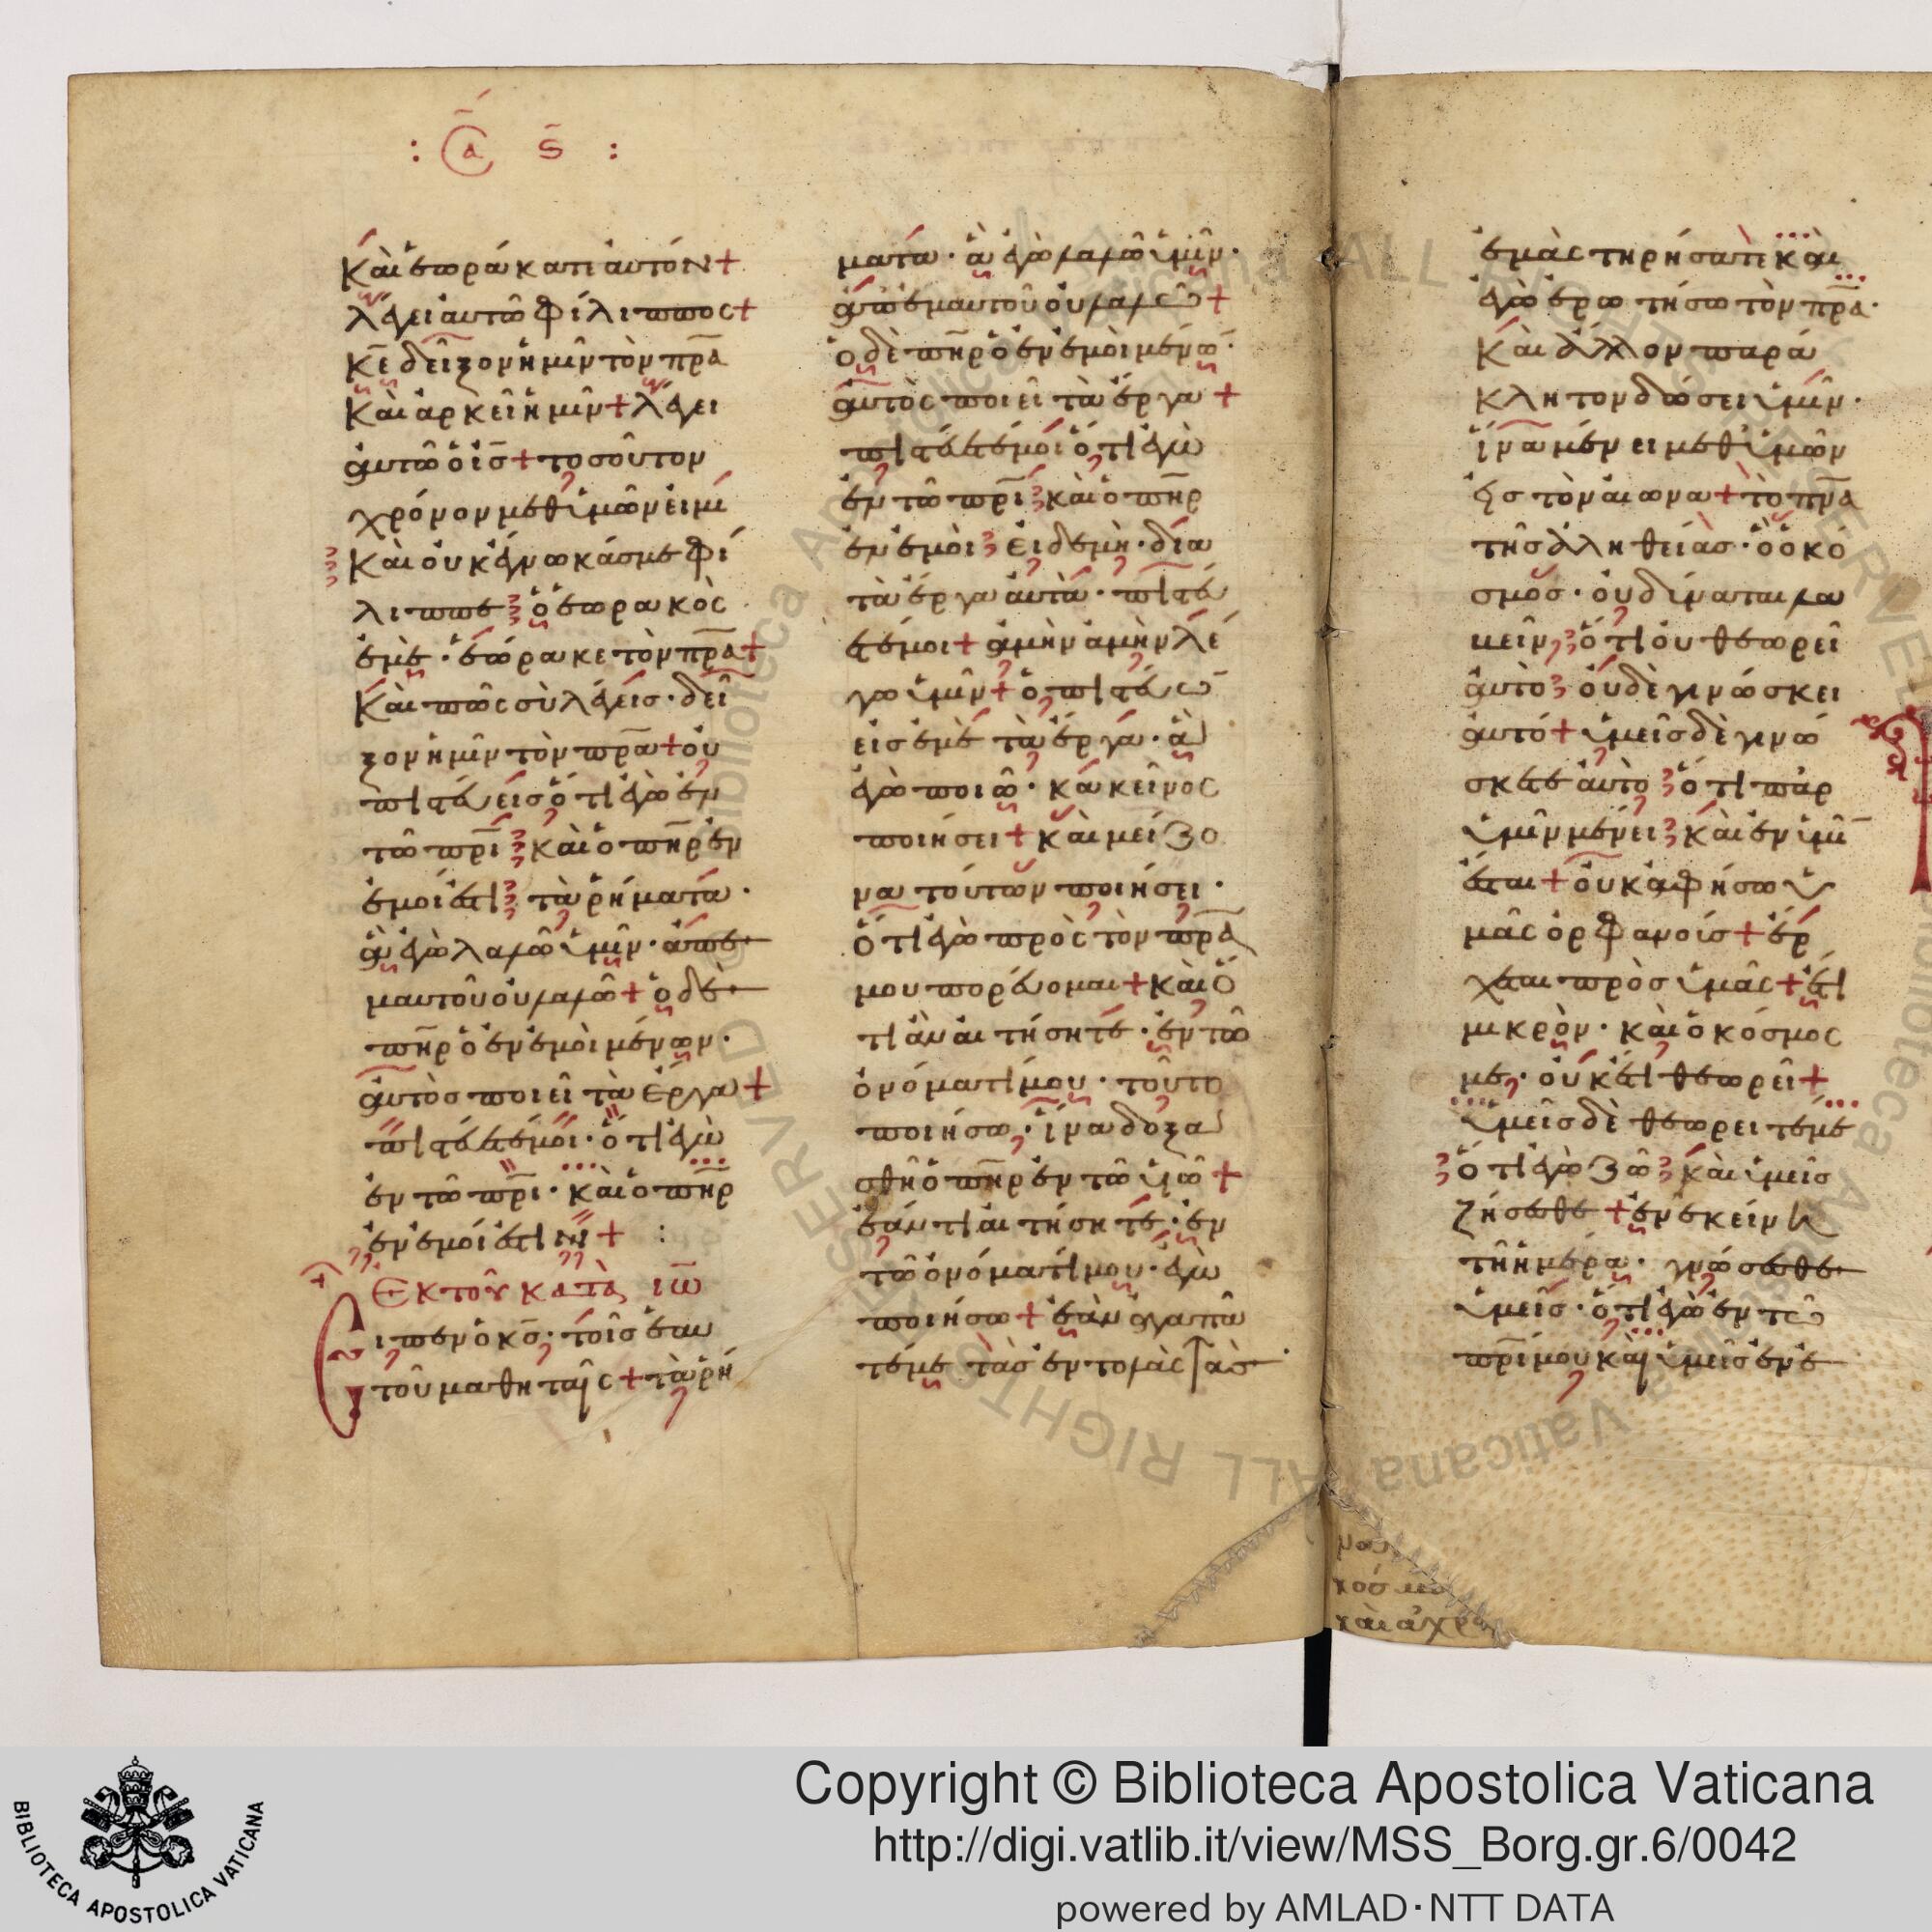 : α ς :
Καὶ ἑωράκατε αὐτόν+
λέγει αὐτῶ Φίλιππος+
κ̅ε̅ δεῖξον ἡμῖν τὸν π̅ρ̅α̅
Καὶ ἀρκεῖ ἡμῖν+λέγει
αὐτῶ ὁ ι̅ς̅+τοσοῦτον
χρόνον μεθ ὑμῶν εἰμι
Καὶ οὐκ ἔγνωκάς με Φί
λιππε ὁ ἑωρακὼς
ἐμὲ· ἑώρακε τὸν π̅ρ̅α̅+
Καὶ πῶς σὺ λέγεις· δεῖ
ξον ἡμῖν τὸν π̅ρ̅α̅+οὐ
πιστεύεις ὅτι ἐγὼ ἐν
τῶ π̅ρ̅ι̅ καὶ ὁ π̅η̅ρ̅ ἐν
ἐμοί ἐστι τὰ ῥήματα·
ἃ ἐγὼ λαλῶ ὑμῖν· ἀπ ἐ
μαυτοῦ οὐ λαλῶ+ὁ δὲ
π̅η̅ρ̅ ὁ ἐν ἐμοὶ μένων·
αὐτὸς ποιεῖ τὰ ἔργα+
πιστεύετέ μοι· ὅτι ἐγὼ
ἐν τῶ π̅ρ̅ι̅· καὶ ὁ π̅η̅ρ̅
ἐν ἐμοί ἐστιν+ :
Ἐκ τοῦ κατὰ ι̅ω̅
Εἶπεν ὁ κ̅ς̅· τοῖς ἑαυ
τοῦ μαθηταῖς+τὰ ῥή
ματα· ἃ ἐγὼ λαλῶ ὑμῖν·
ἀπ ἐμαυτοῦ οὐ λαλῶ+
ὁ δὲ π̅η̅ρ̅ ὁ ἐν ἐμοὶ μένω̅·
αὐτὸς ποιεῖ τὰ ἔργα+
πιστεύετέ μοι ὅτι ἐγὼ
ἐν τῶ π̅ρ̅ι̅ καὶ ὁ π̅η̅ρ̅
ἐν ἐμοὶ εἰ δὲ μὴ· διὰ
τὰ ἔργα αὐτὰ· πιστεύ
ετέ μοι+ἀμὴν ἀμὴν λέ
γω ὑμῖν+ὁ πιστεύω̅
εἰς ἐμὲ τὰ ἔργα· ἃ
ἐγὼ ποιῶ· κἀκεῖνος
ποιήσει+καὶ μείζο
να τούτων ποιήσει·
ὅτι ἐγὼ πρὸς τὸν π̅ρ̅α̅
μου πορεύομαι+καὶ ὅ
τι ἂν αἰτήσητε· ἐν τῶ
ὀνόματί μου· τοῦτο
ποιήσω· ἵνα δοξα
σθῆ ὁ π̅η̅ρ̅ ἐν τῶ υἱῶ+
ἐάν τι αἰτήσητε· ἐν
τῶ ὀνόματί μου· ἐγὼ
ποιήσω+ἐὰν ἀγαπᾶ
τέ με τὰς ἐντολὰς τὰς
ἐμὰς τηρήσατε καὶ
ἐγὼ ἐρωτήσω τὸν π̅ρ̅α̅·
Καὶ ἄλλον παρά
κλητον δώσει ὑμῖν·
ἵνα μένει μεθ ὑμῶν
εἰς τὸν αἰῶνα+τὸ π̅ν̅α̅
τῆς ἀληθείας· ὃ ὁ κό
σμος· οὐ δύναται λα
βεῖν ὅτι οὐ θεωρεῖ
αὐτὸ οὐδὲ γινώσκει
αὐτό+ὑμεῖς δὲ γινώ
σκετε αὐτὸ ὅτι παρ
ὑμῖν μένει καὶ ἐν ὑμῖ̅
ἔσται+οὐκ ἀφήσω ὑ
μᾶς ὀρφανοὺς+ἔρ
χομαι πρὸς ὑμᾶς+ἔτι
μικρὸν· καὶ ὁ κόσμος
με· οὐκ ἔτι θεωρεῖ+
ὑμεῖς δὲ θεωρεῖτέ με
ὅτι ἐγὼ ζῶ καὶ ὑμεῖς
ζήσεσθε+ἐν ἐκείνη
τῆ ἡμέρα· γνώσεσθε
ὑμεῖς· ὅτι ἐγὼ ἐν τῶ
π̅ρ̅ι̅ μου καὶ ὑμεῖς ἐν ἐ
BIBLIOTECA APOSTOLICA VATICANA
Copyright © Biblioteca Apostolica Vaticana
http://digi.vatlib.it/view/MSS_Borg.gr.6/0042
powered by AMLAD·NTT DATA